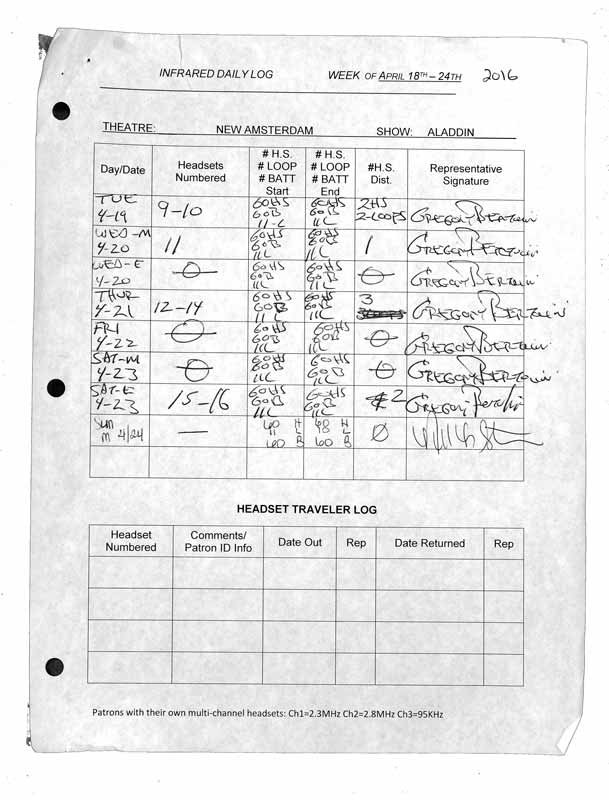 INFRARED DAILY LOG WEEK OF APRIL 18TH – 24TH 2016
THEATRE: NEW AMSTERDAM SHOW: ALADDIN
Day/Date Headsets Numbered # H.S. # LOOP # BATT Start # H.S. # LOOP # BATT End #H.S. Dist. Representative Signature
TUE 4-19 9-10 60HS 60B 11-L 60HS 60B 11L 2HS 2-LOOPS GREGORY
WED-M 4-20 11 60HS 60B 11L 60HS 60B 11L 1 GREGORY
WED-E 4-20 0 60HS 60B 11L 60HS 60B 11L 0 GREGORY
THUR 4-21 12-14 60HS 60B 11L 60HS 60B 11L 3 GREGORY
FRI 4-22 0 60HS 60B 11L 60HS 60B 11L 0 GREGORY
SAT-M 4-23 0 60HS 60B 11L 60HS 60B 11L 0 GREGORY
SAT-E 4-23 15-16 60HS 60B 11L 60HS 60B 11L 2 GREGORY
SUN M 4/24 — 60 H 11 L 60 B H L 60 B Ø
HEADSET TRAVELER LOG
Headset Numbered Comments/ Patron ID Info Date Out Rep Date Returned Rep
Patrons with their own multi-channel headsets: Ch1=2.3MHz Ch2=2.8MHz Ch3=95KHz